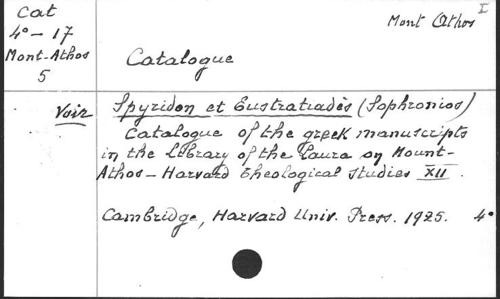 I
Cat
4° - 17
Mont-Athos
5
Mont Athos
Catalogue
Voir
Spyridon et Eustratiadès (Sophronios)
Catalogue of the greek manuscripts
in the Library of the Laura on Mount-
Athos - Harvard theological studies XII.
Cambridge, Harvard Univ. Press. 1925. 4°